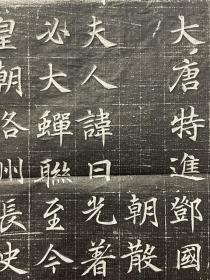 大唐特進鄧國
朝散
夫人諱曰光著
必大蟬聯至今
皇朝洛州長史